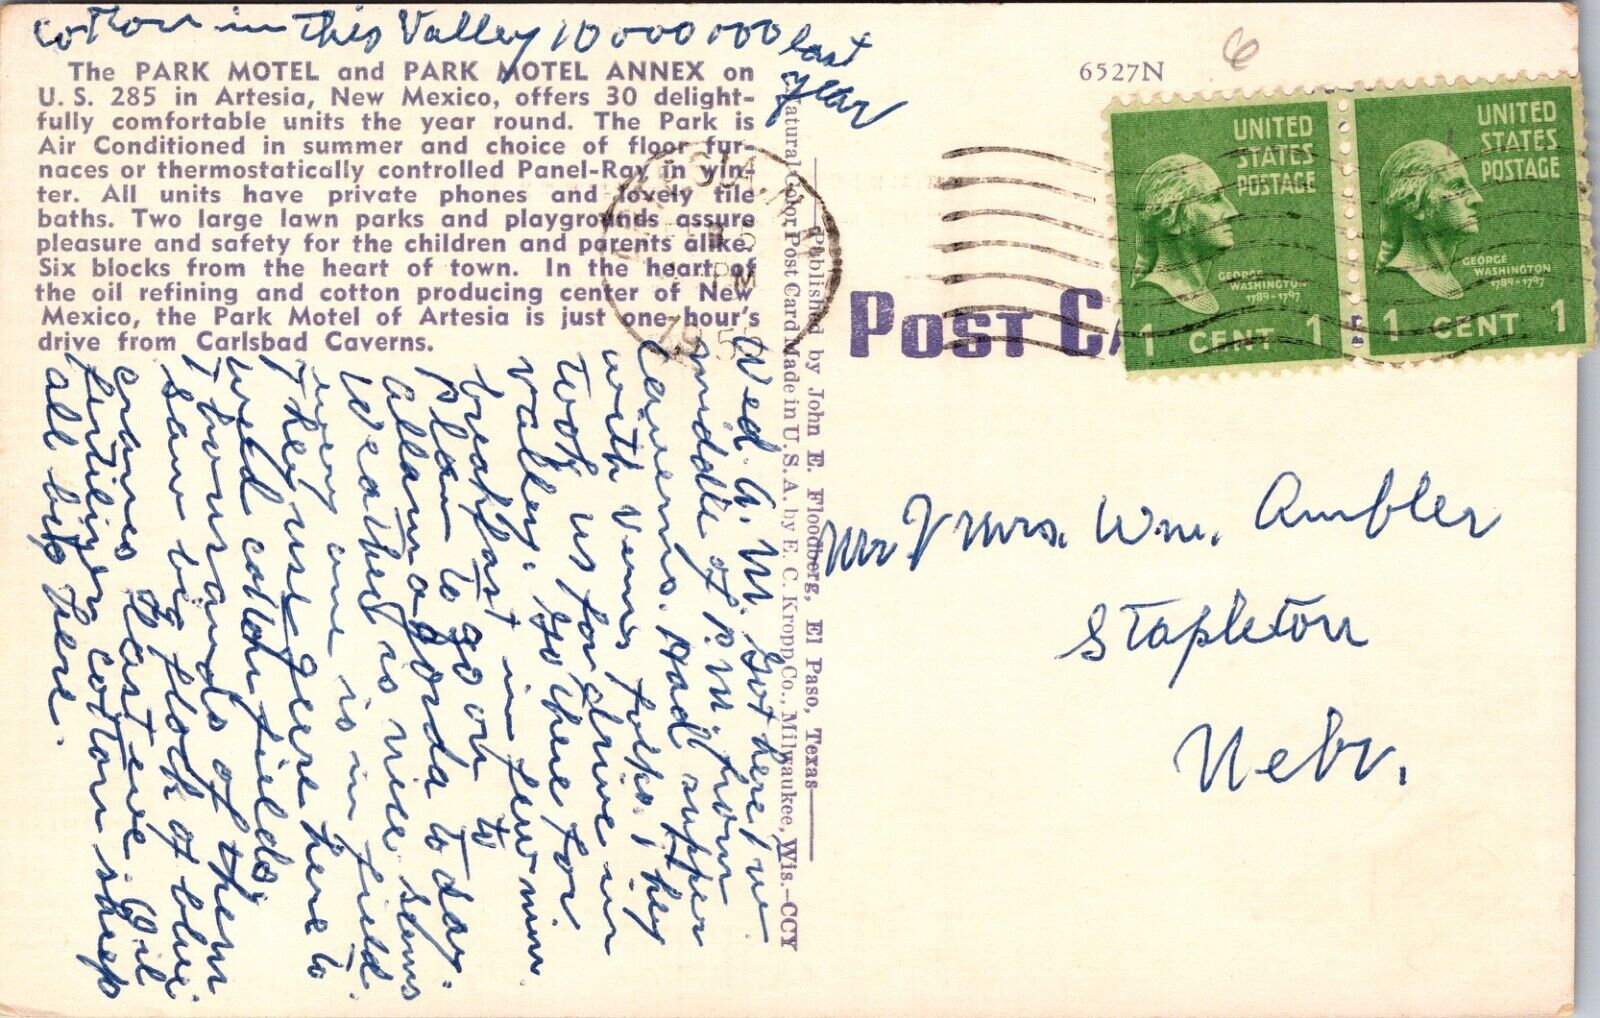 cotton in this Valley 10000000 last
year
The PARK MOTEL and PARK MOTEL ANNEX on
U. S. 285 in Artesia, New Mexico, offers 30 delight-
fully comfortable units the year round. The Park is
Air Conditioned in summer and choice of floor fur-
naces or thermostatically controlled Panel-Ray in win-
ter. All units have private phones and lovely tile
baths. Two large lawn parks and playgrounds assure
pleasure and safety for the children and parents alike.
Six blocks from the heart of town. In the heart of
the oil refining and cotton producing center of New
Mexico, the Park Motel of Artesia is just one-hour's
drive from Carlsbad Caverns.
Wed. A. M. Got here in
middle of P. M. from
Caverns. Had supper
with Verns folks. They
took us for drive in
valley. Go there for
breakfast in few min.
Plan to go on to
Allamagorda to day.
Weather is nice seems
every one is in field
They use geese here to
weed cotton fields,
thousands of them
saw big flock of blue
cranes last eve. Oil
fertilizer cotton sheep
all big here.
Published by John E. Floodberg, El Paso, Texas
Natural Color Post Card Made in U. S. A. by E. C. Kropp Co., Milwaukee, Wis.—CCY
6527N
6
PM
POST CA
UNITED
STATES
POSTAGE
GEORGE
WASHINGTON
1789-1797
1 CENT 1
UNITED
STATES
POSTAGE
GEORGE
WASHINGTON
1789-1797
1 CENT 1
Mr & Mrs. Wm. Ambler
Stapleton
Nebr.